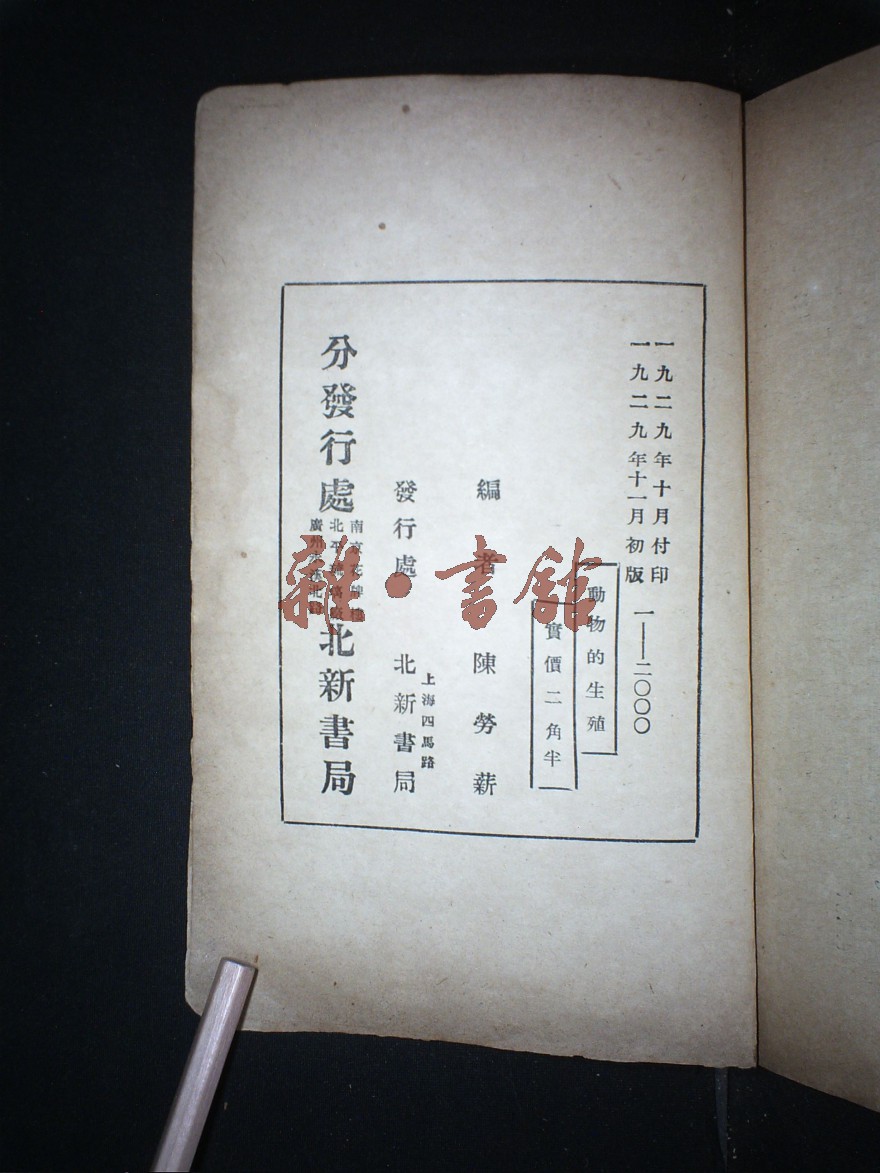 一九二九年十月付印
一九二九年十一月初版
一——二〇〇〇
動物的生殖
實價二角半
編者 陳勞薪
上海四馬路
發行處 北新書局
分發行處
南京花牌樓
北平
廣州 北路
北新書局
雜·書館